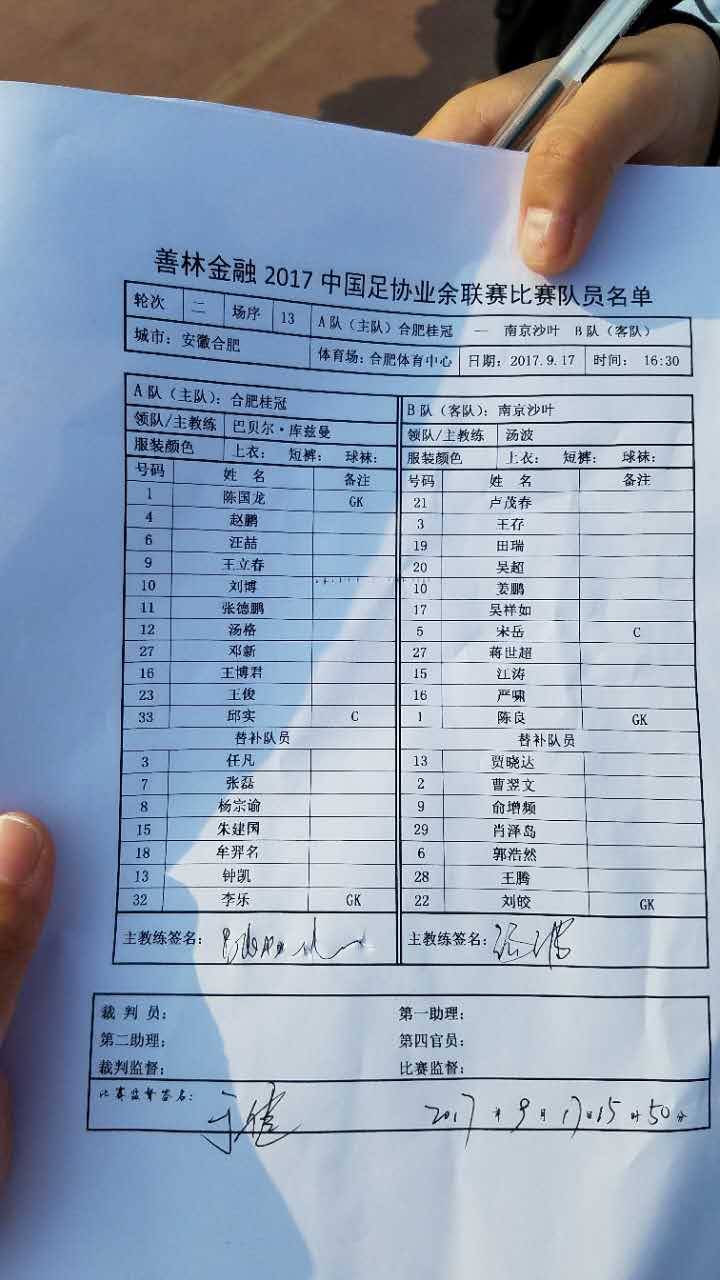 善林金融 2017 中国足协业余联赛比赛队员名单
轮次 二 场序 13 A 队（主队）合肥桂冠 — 南京沙叶 B 队（客队）
城市：安徽合肥 体育场：合肥体育中心 日期：2017.9.17 时间： 16:30
A 队（主队）：合肥桂冠 B 队（客队）：南京沙叶
领队/主教练 巴贝尔·库兹曼 领队/主教练 汤波
服装颜色 上衣： 短裤： 球袜： 服装颜色 上衣： 短裤： 球袜：
号码 姓 名 备注 号码 姓 名 备注
1 陈国龙 GK 21 卢茂春
4 赵鹏 3 王存
6 汪喆 19 田瑞
9 王立春 20 吴超
10 刘博 10 姜鹏
11 张德鹏 17 吴祥如
12 汤格 5 宋岳 C
27 邓新 27 蒋世超
16 王博君 15 江涛
23 王俊 16 严啸
33 邱实 C 1 陈良 GK
替补队员 替补队员
3 任凡 13 贾晓达
7 张磊 2 曹翌文
8 杨宗谕 9 俞增频
15 朱建国 29 肖泽岛
18 牟羿名 6 郭浩然
13 钟凯 28 王腾
32 李乐 GK 22 刘皎 GK
主教练签名： 主教练签名：
裁 判 员： 第一助理：
第二助理： 第四官员：
裁判监督： 比赛监督：
比赛监督签名： 2017 年 9 月 17日 15 时 50分